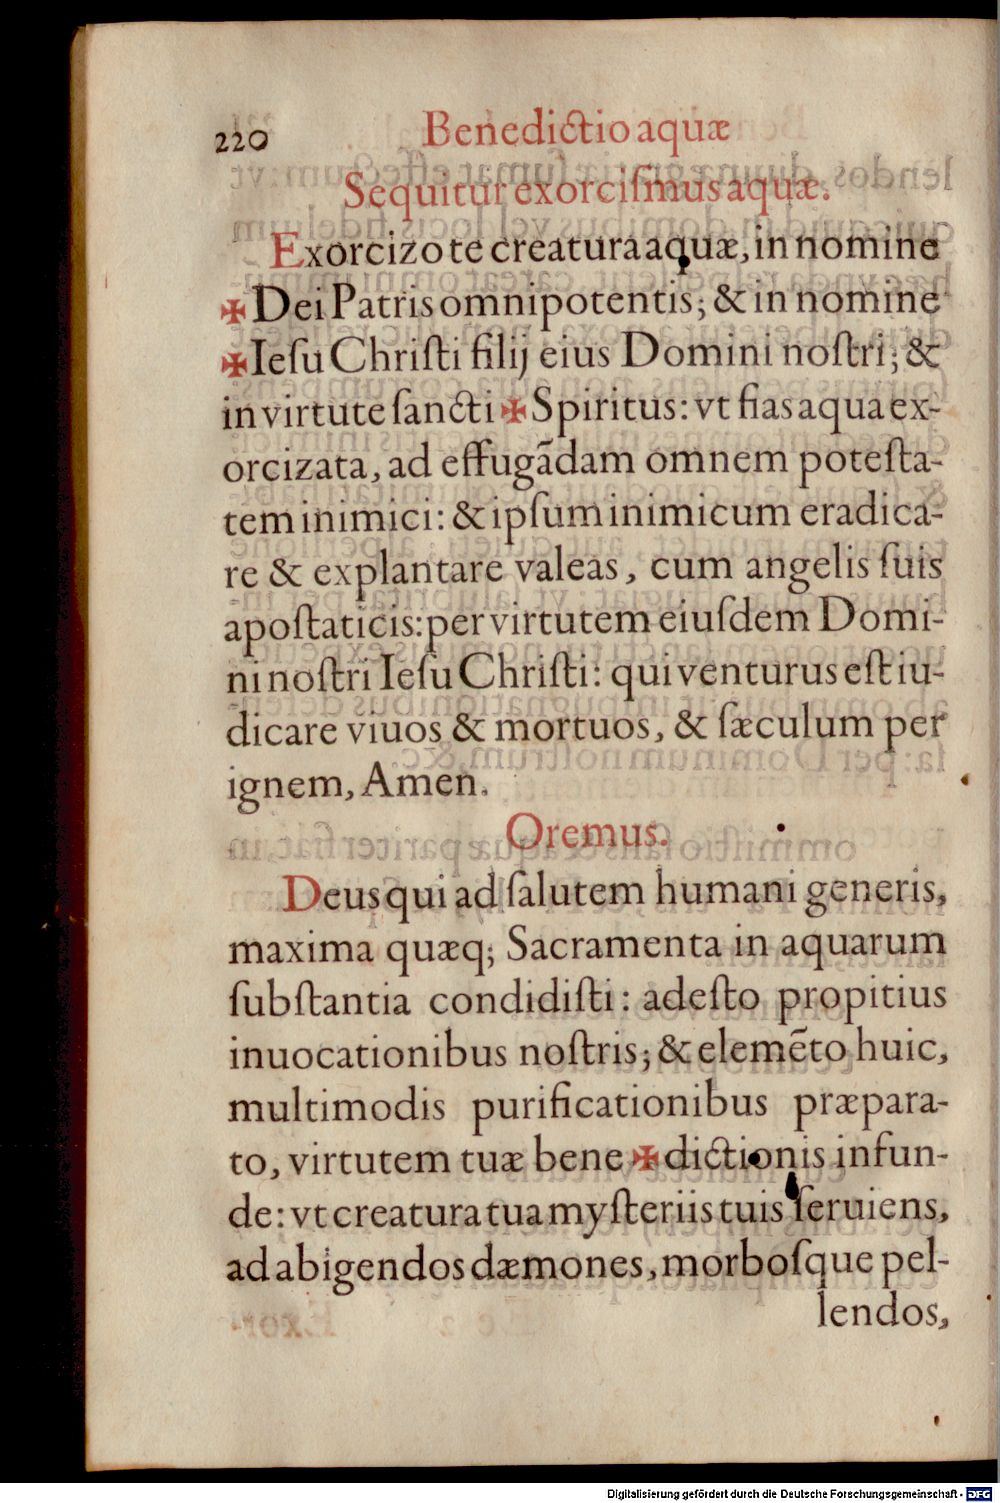 220
Benedictio aquæ
Sequitur exorciſmus aquæ.
Exorcizo te creatura aquæ, in nomine
✠ Dei Patris omnipotentis; & in nomine
✠ Ieſu Chriſti filij eius Domini noſtri; &
in virtute ſancti ✠ Spiritus: vt fias aqua ex-
orcizata, ad effugādam omnem poteſta-
tem inimici: & ipſum inimicum eradica-
re & explantare valeas, cum angelis ſuis
apoſtaticis: per virtutem eiuſdem Domi-
ni noſtri Ieſu Chriſti: qui venturus eſt iu-
dicare viuos & mortuos, & ſæculum per
ignem, Amen.
Oremus.
Deus qui ad ſalutem humani generis,
maxima quæq; Sacramenta in aquarum
ſubſtantia condidiſti: adeſto propitius
inuocationibus noſtris; & elemēto huic,
multimodis purificationibus præpara-
to, virtutem tuæ bene ✠ dictionis infun-
de: vt creatura tua myſteriis tuis ſeruiens,
ad abigendos dæmones, morboſque pel-
lendos,
Digitalisierung gefördert durch die Deutsche Forschungsgemeinschaft - DFG